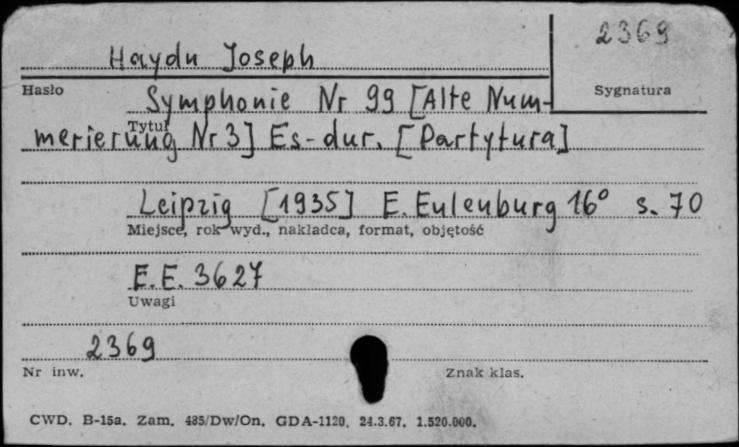 2369
Haydn Joseph
Hasło
Sygnatura
Symphonie Nr 99 [Alte Num-
Tytuł
merierung Nr 3] Es-dur. [Partytura]
Leipzig [1935] E. Eulenburg 16° s. 70
Miejsce, rok wyd., nakladca, format, objętość
E.E. 3627
Uwagi
2369
Nr inw.
Znak klas.
CWD. B-15a. Zam. 485/Dw/On. GDA-1120. 24.3.67. 1.520.000.